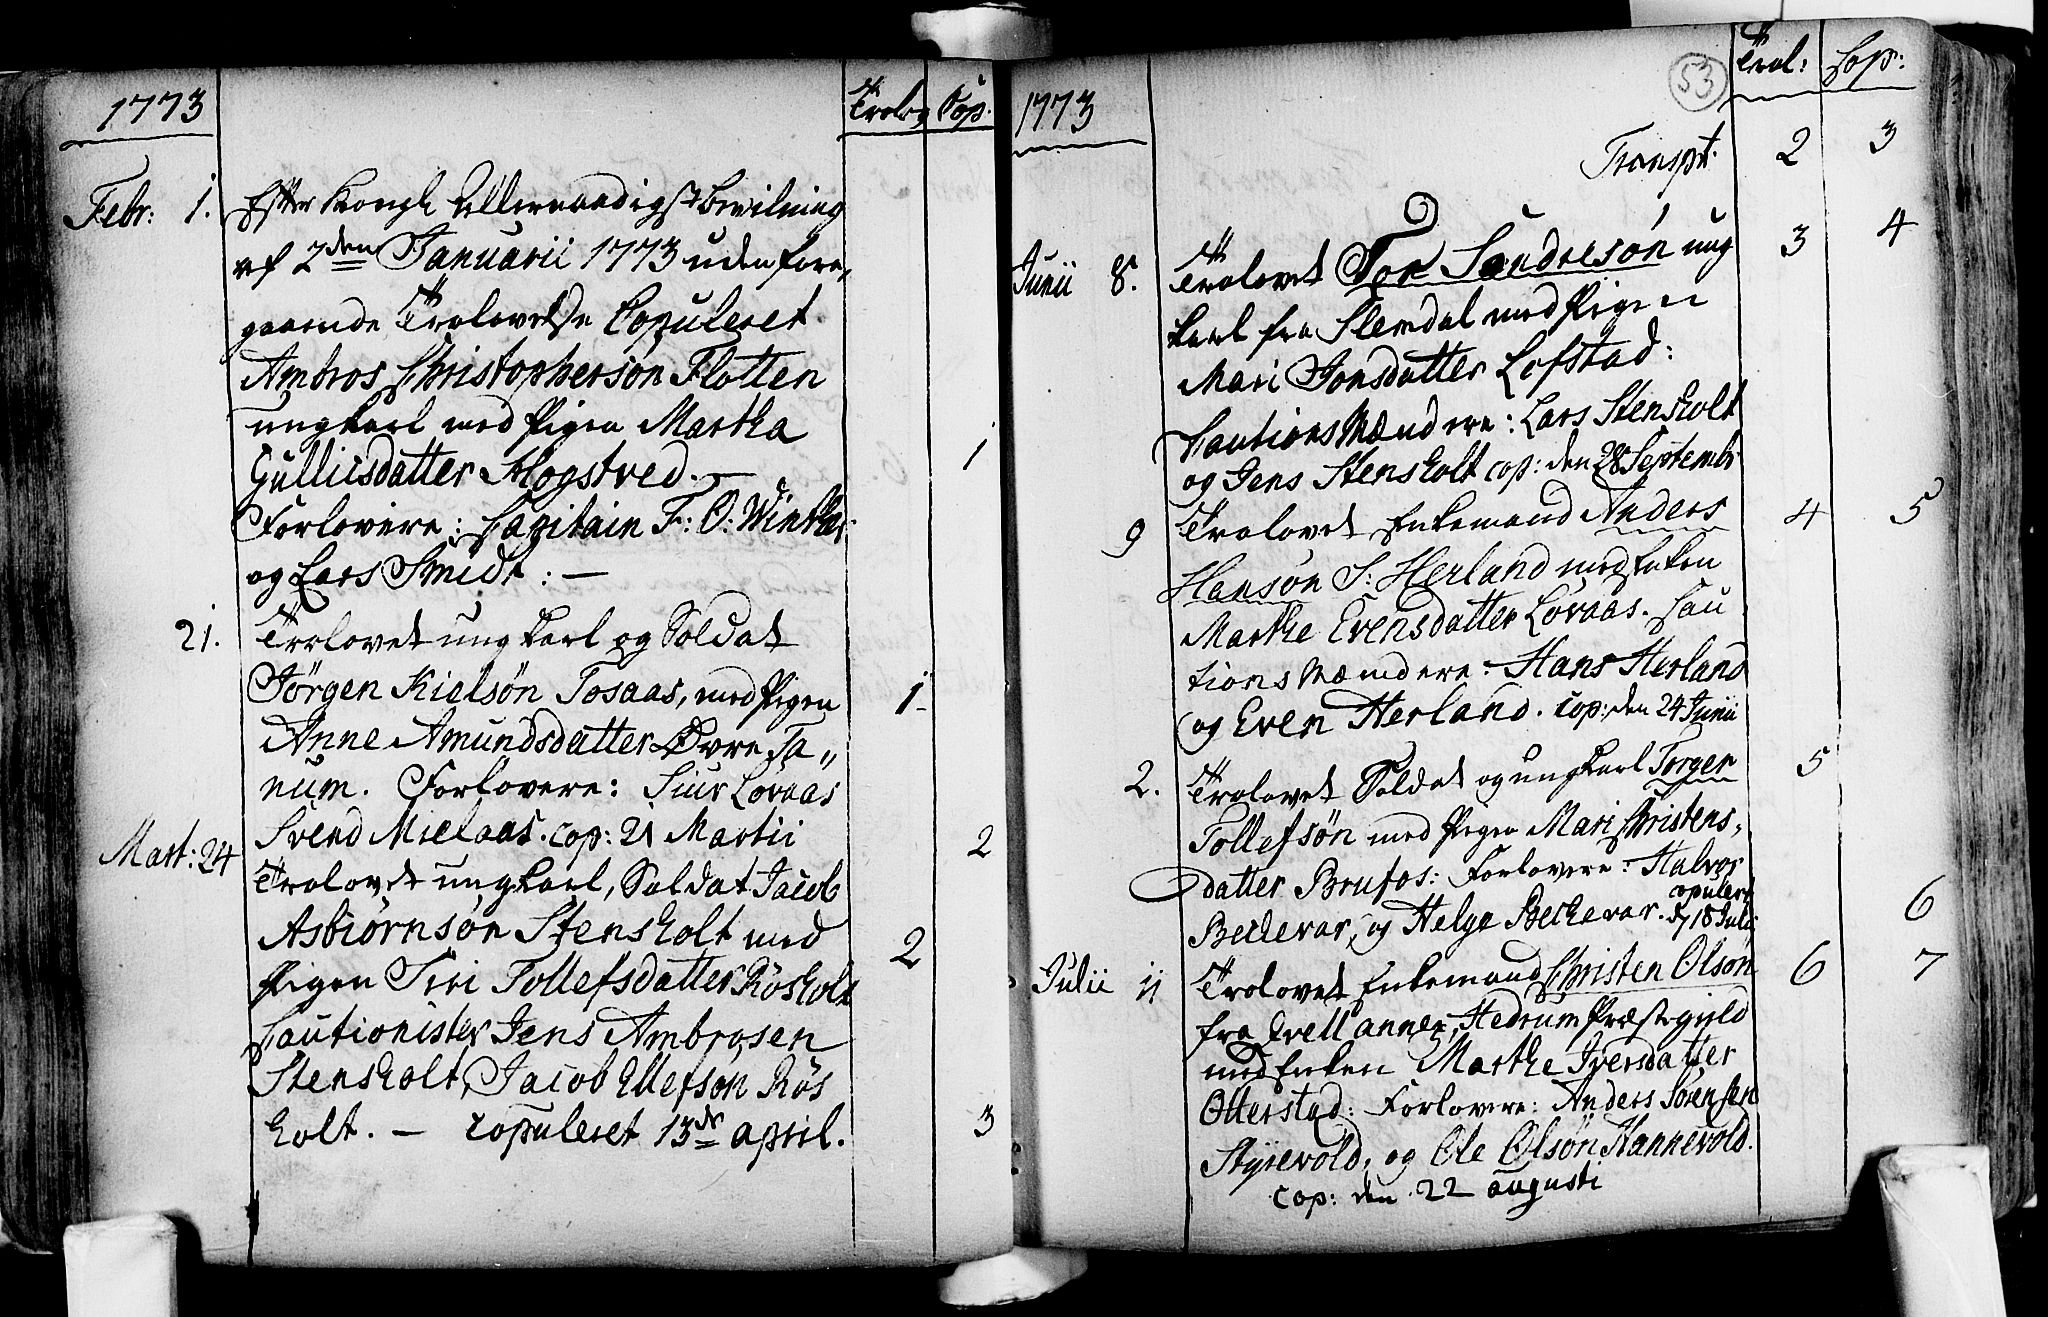 1773
Trolov Cop.
Febr: 1. Efter Kongl. Allernaadigst bevilning
af 2den Januarii 1773 uden fore,
gaaende Trolovelse Copuleret
Ambros Christophersøn Flotten
ungkarl med Pigen Martha
Gullicsdatter Mogstved. — 1
Forlovere: Capitain F: O: Winther
og Lars Smidt: —
21. Trolovet ungkarl og Soldat
Jörgen Kielsøn Tosaas, med Pigen 1
Anne Amundsdatter Øvre Ta„
num. Forlovere: Siur Lovaas
Svend Mielaas. cop: 21 Martii 2
Mart: 24 Trolovet ungkarl, Soldat Jacob
Asbiørnsøn Stensholt med
Pigen Siri Tollefsdatter Røsholt 2
Cautionister Jens Ambrosen
Stensholt, Jacob Ellefsøn Røs
holt. — copuleret 13de april. 3
53
1773
Trol: Cop:
Transpt. 2 3
Junii 8. Trolovet Tor Sandresøn ung 3 4
karl fra Slemdal med Pigen
Mari Jonsdatter Lofstad:
Cautions Mændere: Lars Stensholt
og Jens Stensholt cop: den 28 Septembr
9 Trolovet Enkemand Anders 4 5
Hansøn S: Herland med Enken
Marthe Evensdatter Lovaas. Cau
tions Mændere: Hans Herland
og Even Herland. cop: den 24 Junii
2. Trolovet Soldat og ungkarl Torger 5
Tollefsøn med Pigen Mari Christens,
datter Brufos: Forlovere: Halvor
Beckevar, og Helge Beckevar. copuleret d 18 Julii 6
Julii 11 Trolovet Enkemand Christen Olsøn 6 7
fra Qvell annex, Hedrum Præstegield
med Enken Marthe Iversdatter
Otterstad: Forlovere: Anders Sörensen
Styrevold, og Ole Olsøn Hannevold.
cop: den 22 augusti